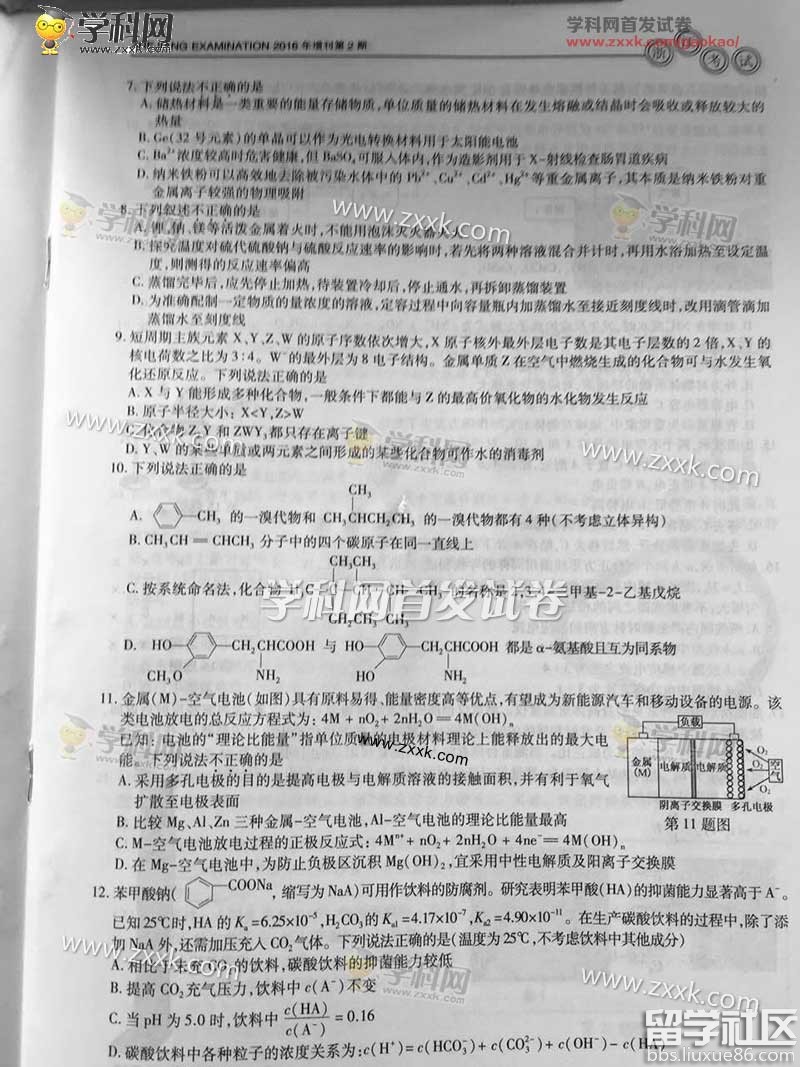 学科网
www.zxxk.com
学科网首发试卷
www.zxxk.com/gaokao/
EXAMINATION 2016 年增刊第 2 期
浙 考试
7. 下列说法不正确的是
A. 储热材料是一类重要的能量存储物质,单位质量的储热材料在发生熔融或结晶时会吸收或释放较大的
热量
B. Ge(32 号元素)的单晶可以作为光电转换材料用于太阳能电池
C. Ba²⁺浓度较高时危害健康,但 BaSO₄可服入体内,作为造影剂用于 X-射线检查肠胃道疾病
D. 纳米铁粉可以高效地去除被污染水体中的 Pb²⁺、Cu²⁺、Cd²⁺、Hg²⁺等重金属离子,其本质是纳米铁粉对重
金属离子较强的物理吸附
学科网 www.zxxk.com 学科网
8. 下列叙述不正确的是
A. 钾、钠、镁等活泼金属着火时,不能用泡沫灭火器灭火
B. 探究温度对硫代硫酸钠与硫酸反应速率的影响时,若先将两种溶液混合并计时,再用水浴加热至设定温
度,则测得的反应速率偏高
C. 蒸馏完毕后,应先停止加热,待装置冷却后,停止通水,再拆卸蒸馏装置
D. 为准确配制一定物质的量浓度的溶液,定容过程中向容量瓶内加蒸馏水至接近刻度线时,改用滴管滴加
蒸馏水至刻度线
9. 短周期主族元素 X、Y、Z、W 的原子序数依次增大,X 原子核外最外层电子数是其电子层数的 2 倍,X、Y 的
核电荷数之比为 3:4。W⁻的最外层为 8 电子结构。金属单质 Z 在空气中燃烧生成的化合物可与水发生氧
化还原反应。下列说法正确的是
A. X 与 Y 能形成多种化合物,一般条件下都能与 Z 的最高价氧化物的水化物发生反应
B. 原子半径大小: X<Y,Z>W
C. 化合物 Z₂Y 和 ZWY₃都只存在离子键
D. Y、W 的某些单质或两元素之间形成的某些化合物可作水的消毒剂
www.zxxk.com 学科网 www.zxxk.com
10. 下列说法正确的是
CH₃
A. —CH₃ 的一溴代物和 CH₃CHCH₂CH₃ 的一溴代物都有 4 种(不考虑立体异构)
B. CH₃CH=CHCH₃ 分子中的四个碳原子在同一直线上
CH₃CH₃
C. 按系统命名法,化合物 的名称是 2,3,4-三甲基-2-乙基戊烷
学科网首发试卷
CH₂CH₃
D. HO— —CH₂CHCOOH 与 HO— —CH₂CHCOOH 都是 α-氨基酸且互为同系物
CH₃O NH₂ HO NH₂
11. 金属(M)-空气电池(如图)具有原料易得、能量密度高等优点,有望成为新能源汽车和移动设备的电源。该
类电池放电的总反应方程式为: 4M + nO₂ + 2nH₂O = 4M(OH)ₙ
已知:电池的“理论比能量”指单位质量的电极材料理论上能释放出的最大电
能。下列说法不正确的是
A. 采用多孔电极的目的是提高电极与电解质溶液的接触面积,并有利于氧气
扩散至电极表面
B. 比较 Mg、Al、Zn 三种金属-空气电池, Al-空气电池的理论比能量最高
C. M-空气电池放电过程的正极反应式: 4Mⁿ⁺ + nO₂ + 2nH₂O + 4ne⁻ = 4M(OH)ₙ
D. 在 Mg-空气电池中,为防止负极区沉积 Mg(OH)₂,宜采用中性电解质及阳离子交换膜
www.zxxk.com
负载
金属
(M)
电解质 电解质
O₂
O₂
O₂
空气
阴离子交换膜 多孔电极
第 11 题图
12. 苯甲酸钠( —COONa , 缩写为 NaA)可用作饮料的防腐剂。研究表明苯甲酸(HA)的抑菌能力显著高于 A⁻。
已知25℃时,HA 的 Kₐ=6.25×10⁻⁵,H₂CO₃的 Kₐ₁=4.17×10⁻⁷,Kₐ₂=4.90×10⁻¹¹。在生产碳酸饮料的过程中,除了添
加 NaA 外,还需加压充入 CO₂气体。下列说法正确的是(温度为25℃,不考虑饮料中其他成分)
A. 相比于未充 CO₂ 的饮料,碳酸饮料的抑菌能力较低
B. 提高 CO₂充气压力,饮料中 c(A⁻)不变
C. 当 pH 为 5.0 时,饮料中 c(HA)/c(A⁻) = 0.16
D. 碳酸饮料中各种粒子的浓度关系为:c(H⁺)=c(HCO₃⁻)+c(CO₃²⁻)+c(OH⁻)-c(HA)
www.zxxk.com 学科网 www.zxxk.com
留学社区
bbs.liuxue86.com